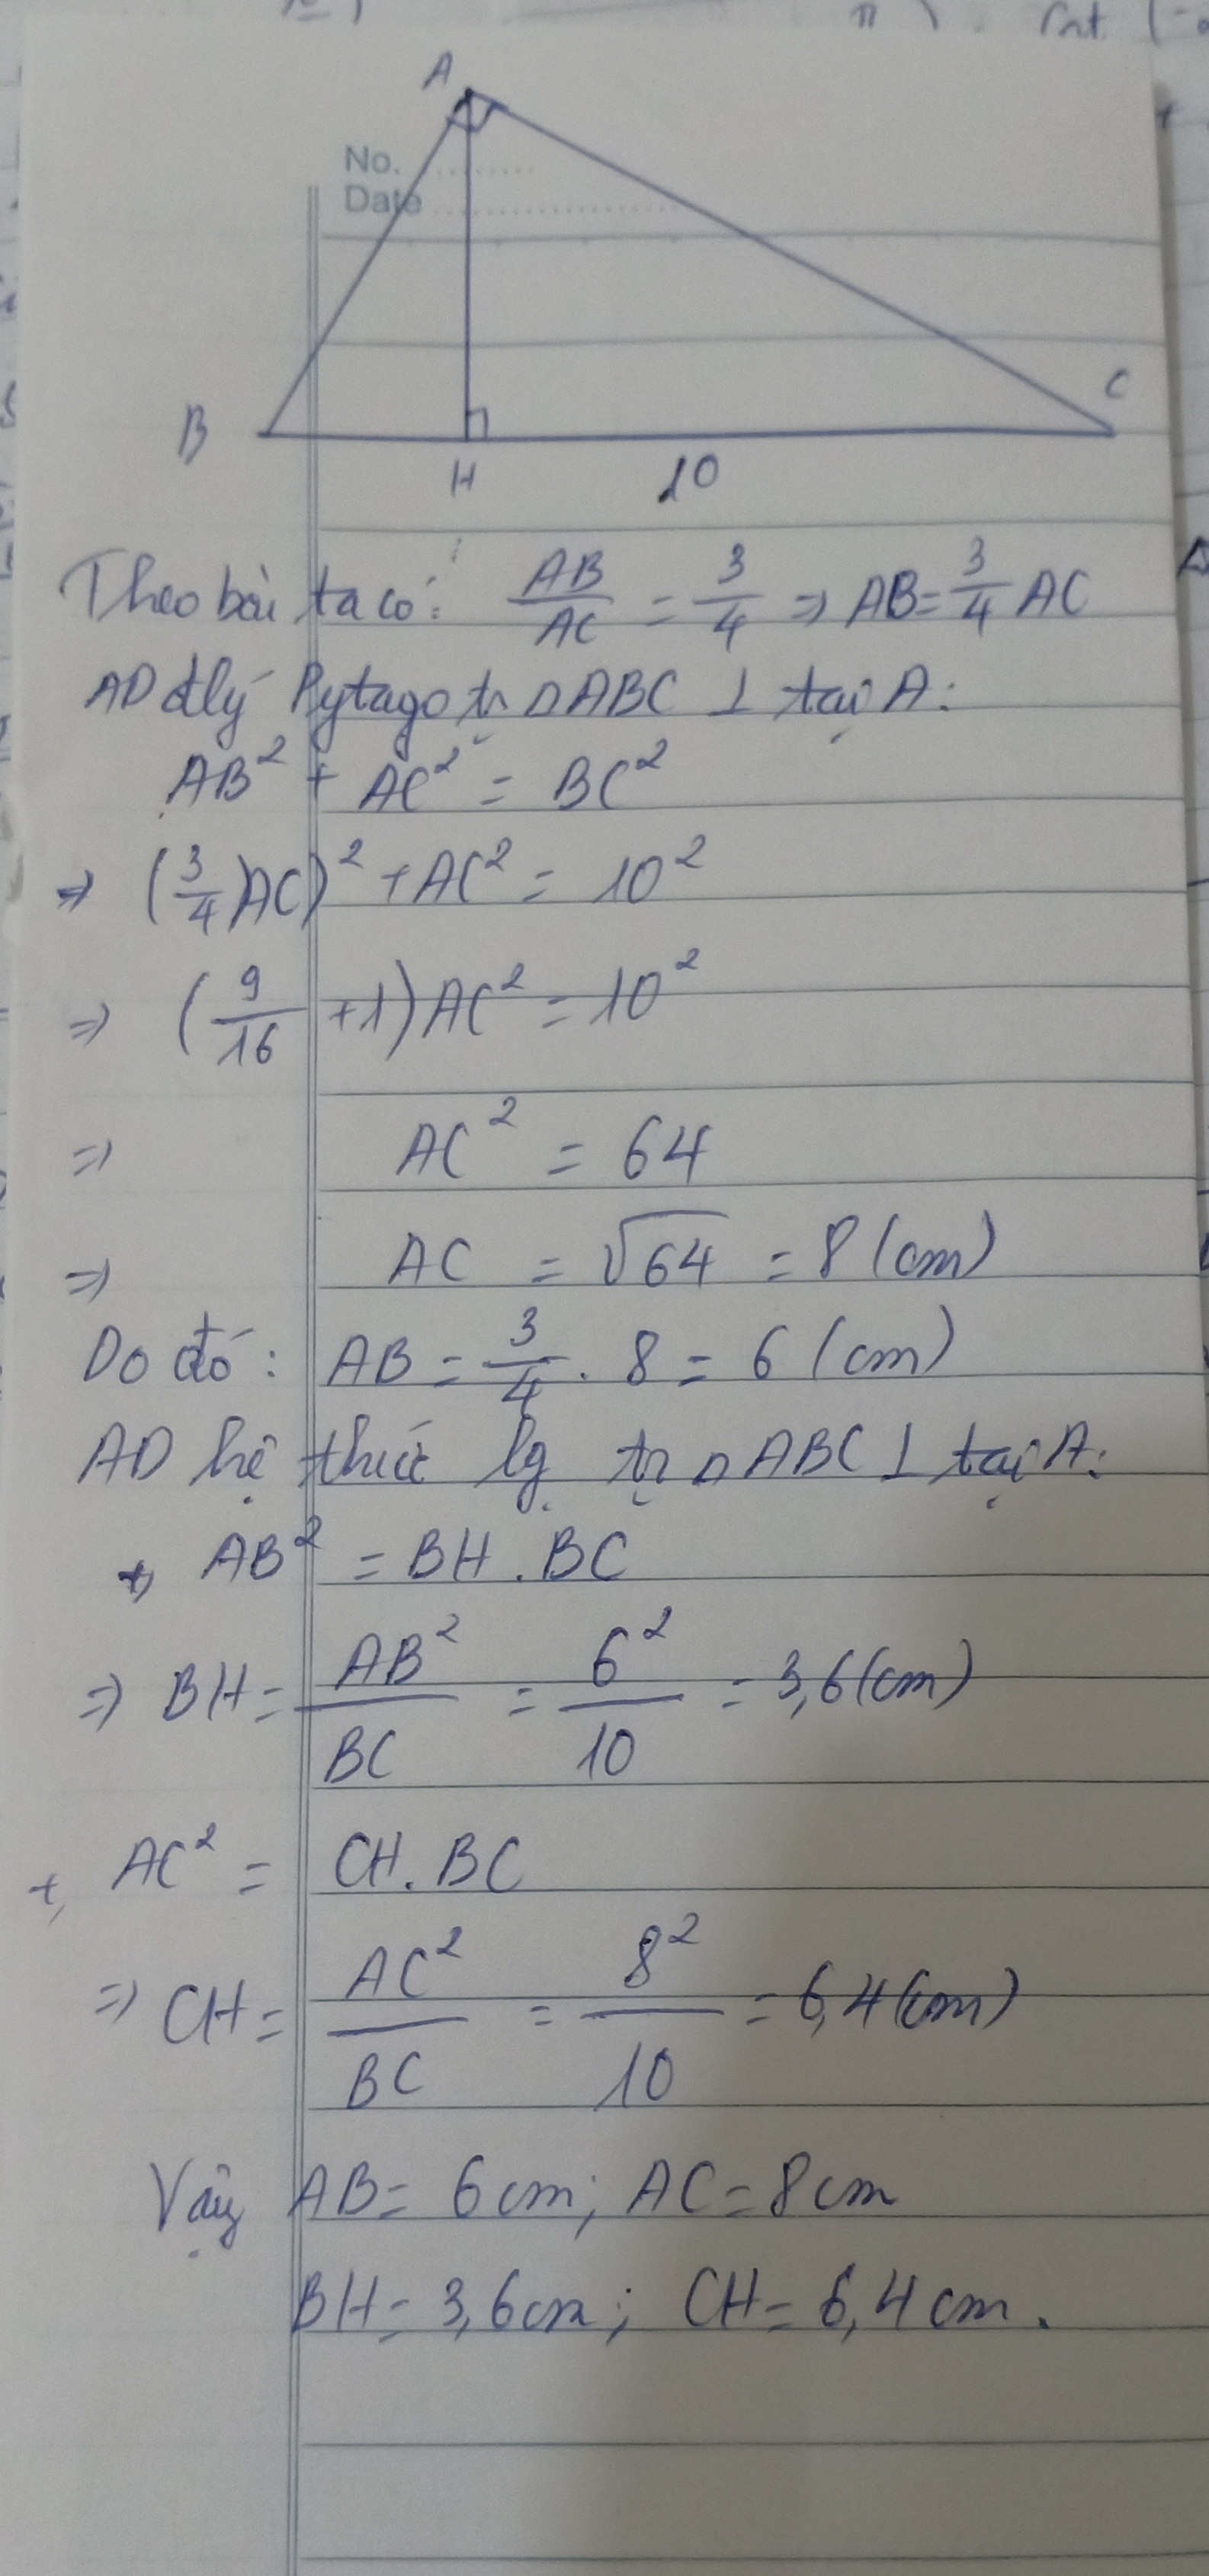 A
No.
Date
C
B
H
10
Theo bài ta có: AB/AC = 3/4 => AB = 3/4 AC
AD đlý Pytago tr △ABC ⊥ tại A:
AB² + AC² = BC²
=> (3/4)AC)² + AC² = 10²
=> (9/16 + 1) AC² = 10²
=> AC² = 64
=> AC = √64 = 8 (cm)
Do đó: AB = 3/4 . 8 = 6 (cm)
AD hệ thức lg tr △ABC ⊥ tại A:
+, AB² = BH . BC
=> BH = AB²/BC = 6²/10 = 3,6 (cm)
+, AC² = CH . BC
=> CH = AC²/BC = 8²/10 = 6,4 (cm)
Vậy AB = 6 cm; AC = 8 cm
BH = 3,6 cm; CH = 6,4 cm.